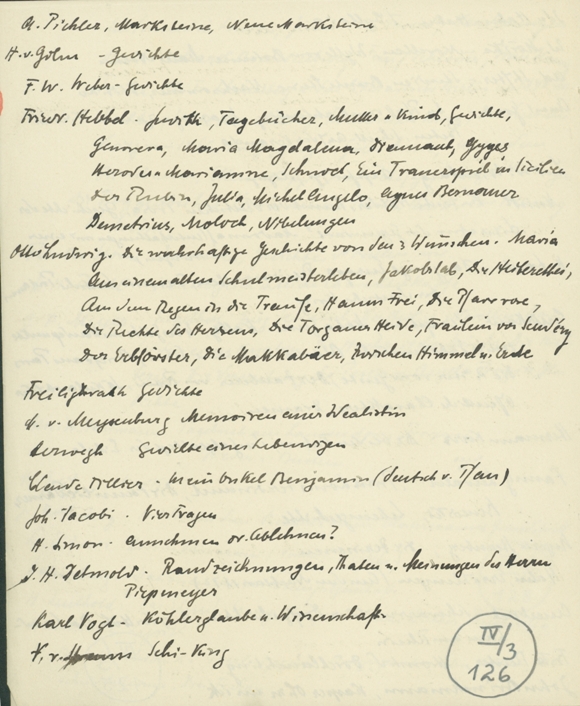 A. Pichler, Marksteine, Neue Marksteine
H. v. Gilm - Gedichte
F. W. Weber - Gedichte
Friedr. Hebbel - Judith, Tagebücher, Mutter u Kind, Gedichte,
Genoveva, Maria Magdalena, Diamant, Gyges
Herodes u Mariamne, Schnock, Ein Trauerspiel in Sicilien
Der Rubin, Julia, Michel Angelo, Agnes Bernauer
Demetrius, Moloch, Nibelungen
Otto Ludwig. Die wahrhaftige Geschichte von den 3 Wünschen. Maria
Aus einem alten Schulmeisterleben, Jakobstab, Die Heiterethei,
Aus dem Regen in die Traufe, Hanns Frei, Die Pfarrose,
Die Rechte des Herzens, Die Torgauer Heide, Fräulein von Scudéry
Der Erbförster, Die Makkabäer, Zwischen Himmel u. Erde
Freiligrath Gedichte
M. v. Meysenburg Memoiren einer Idealistin
Herwegh Gedichte eines Lebendigen
Claude Tillier - Mein Onkel Benjamin (deutsch v. Pfau)
Joh. Jacobi - Vier Fragen
H. Simon - Annehmen od. Ablehnen?
J. H. Detmold - Randzeichnungen, Thaten u. Meinungen des Herrn
Piepmeyer
Karl Vogt - Köhlerglaube u. Wissenschaft
V. v. Schi-King
IV/3
126